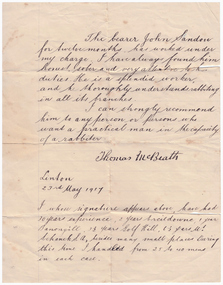 The bearer John Sandow
for twelve months has worked under
my charge. I have always found him
honest, sober and very attentive to his
duties He is a splendid worker,
and thoroughly understands rabbiting
in all its branches
I can strongly recommend
him to any person or persons who
want a practical man in the capacity
of a rabbiter
Thomas McBeath
Linton
23rd May 1917
I whose signature appears above have had
years experience, years
years Golf Hill,
many small places during
this time I handled from 25 to men
in each case.